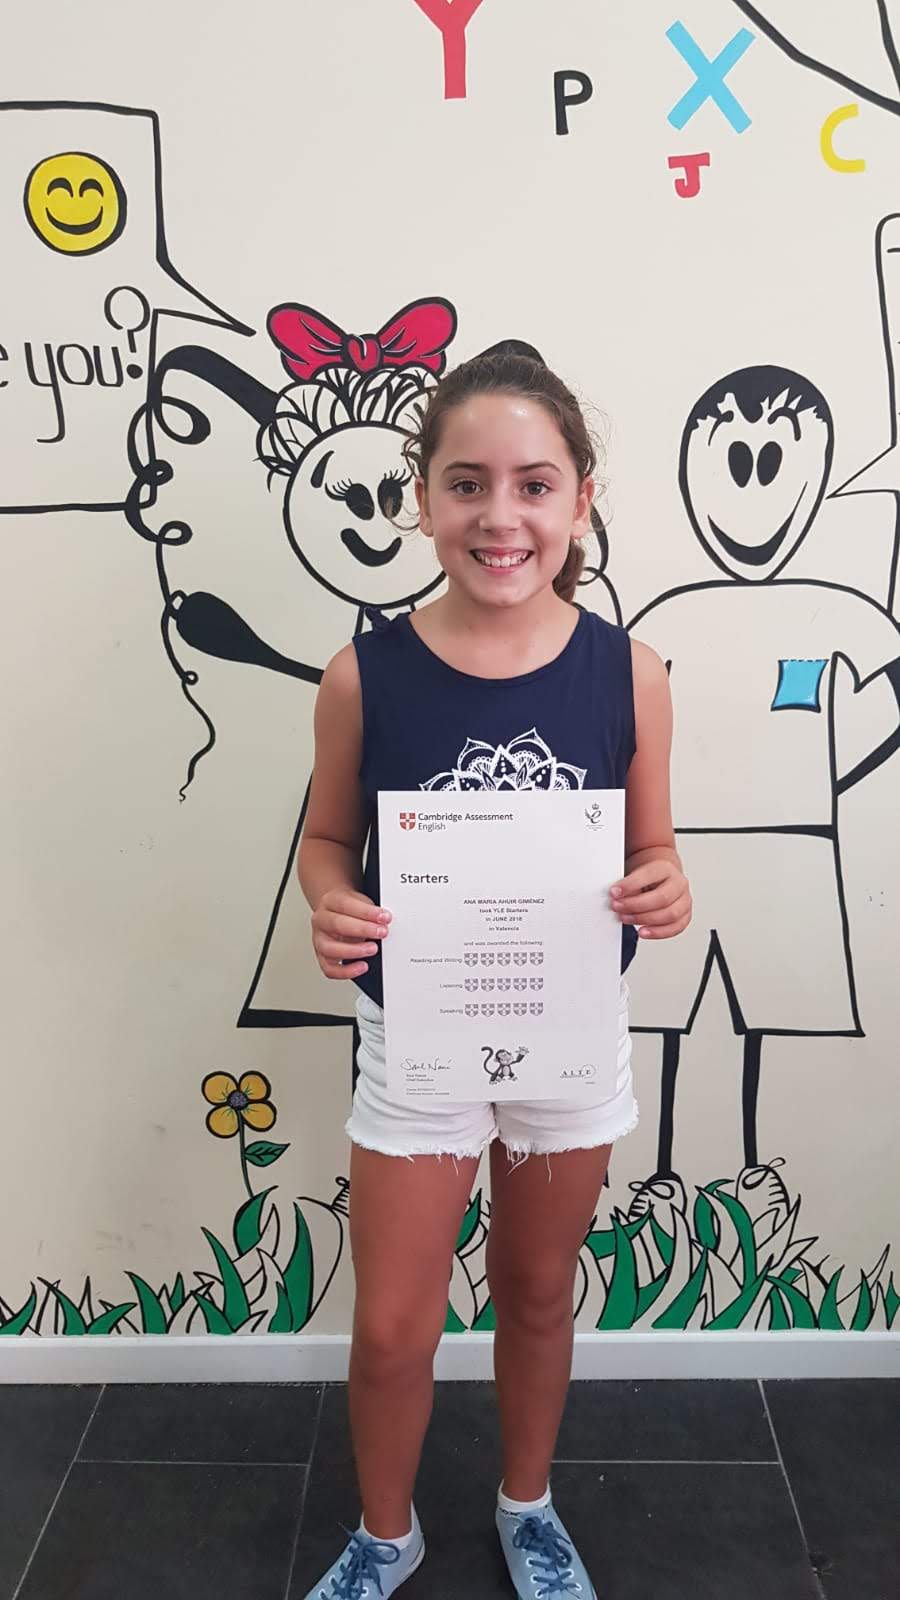 Y
P X
J C
e you?
Cambridge Assessment
English
Starters
ANA MARIA AHUIR GIMÉNEZ
took YLE Starters
in JUNE 2018
in Valencia
and was awarded the following:
Reading and Writing
Listening
Speaking
Saul Nassé
Chief Executive
ALTE